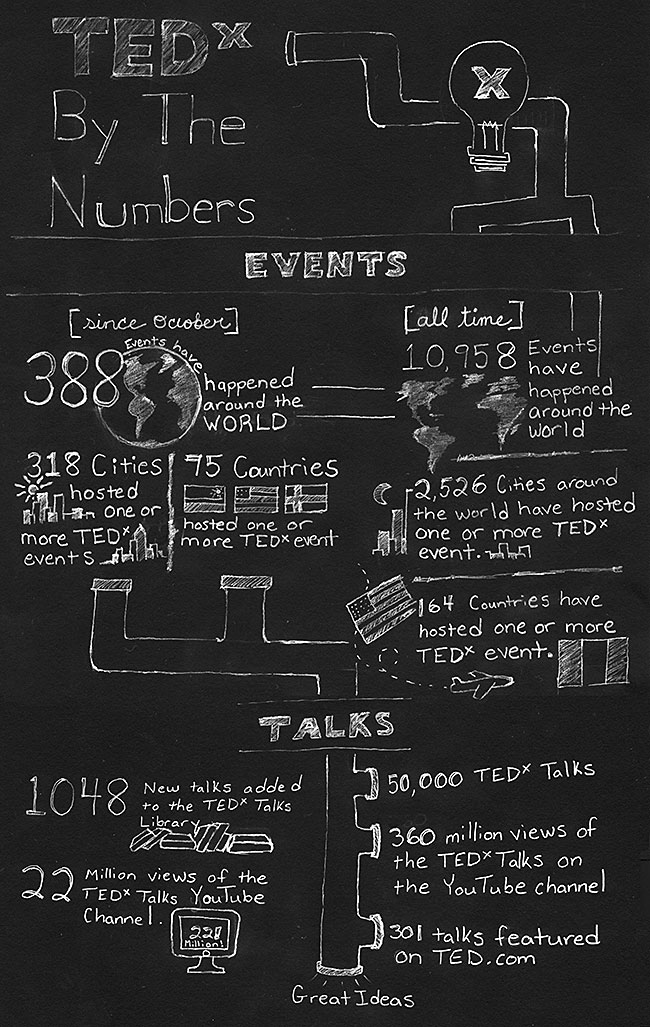 TEDx
By The
Numbers
X
EVENTS
[since October]
388
Events have
happened
around the
WORLD
318 Cities
hosted
one or
more TEDx
events
75 Countries
hosted one or
more TEDx event
[all time]
10,958 Events
have
happened
around the
world
2,526 Cities around
the world have hosted
one or more TEDx
event.
164 Countries have
hosted one or more
TEDx event.
TALKS
1048 New talks added
to the TEDx Talks
Library
22 Million views of the
TEDx Talks YouTube
Channel.
221
Million!
50,000 TEDx Talks
360 million views of
the TEDx Talks on
the YouTube channel
301 talks featured
on TED.com
Great Ideas